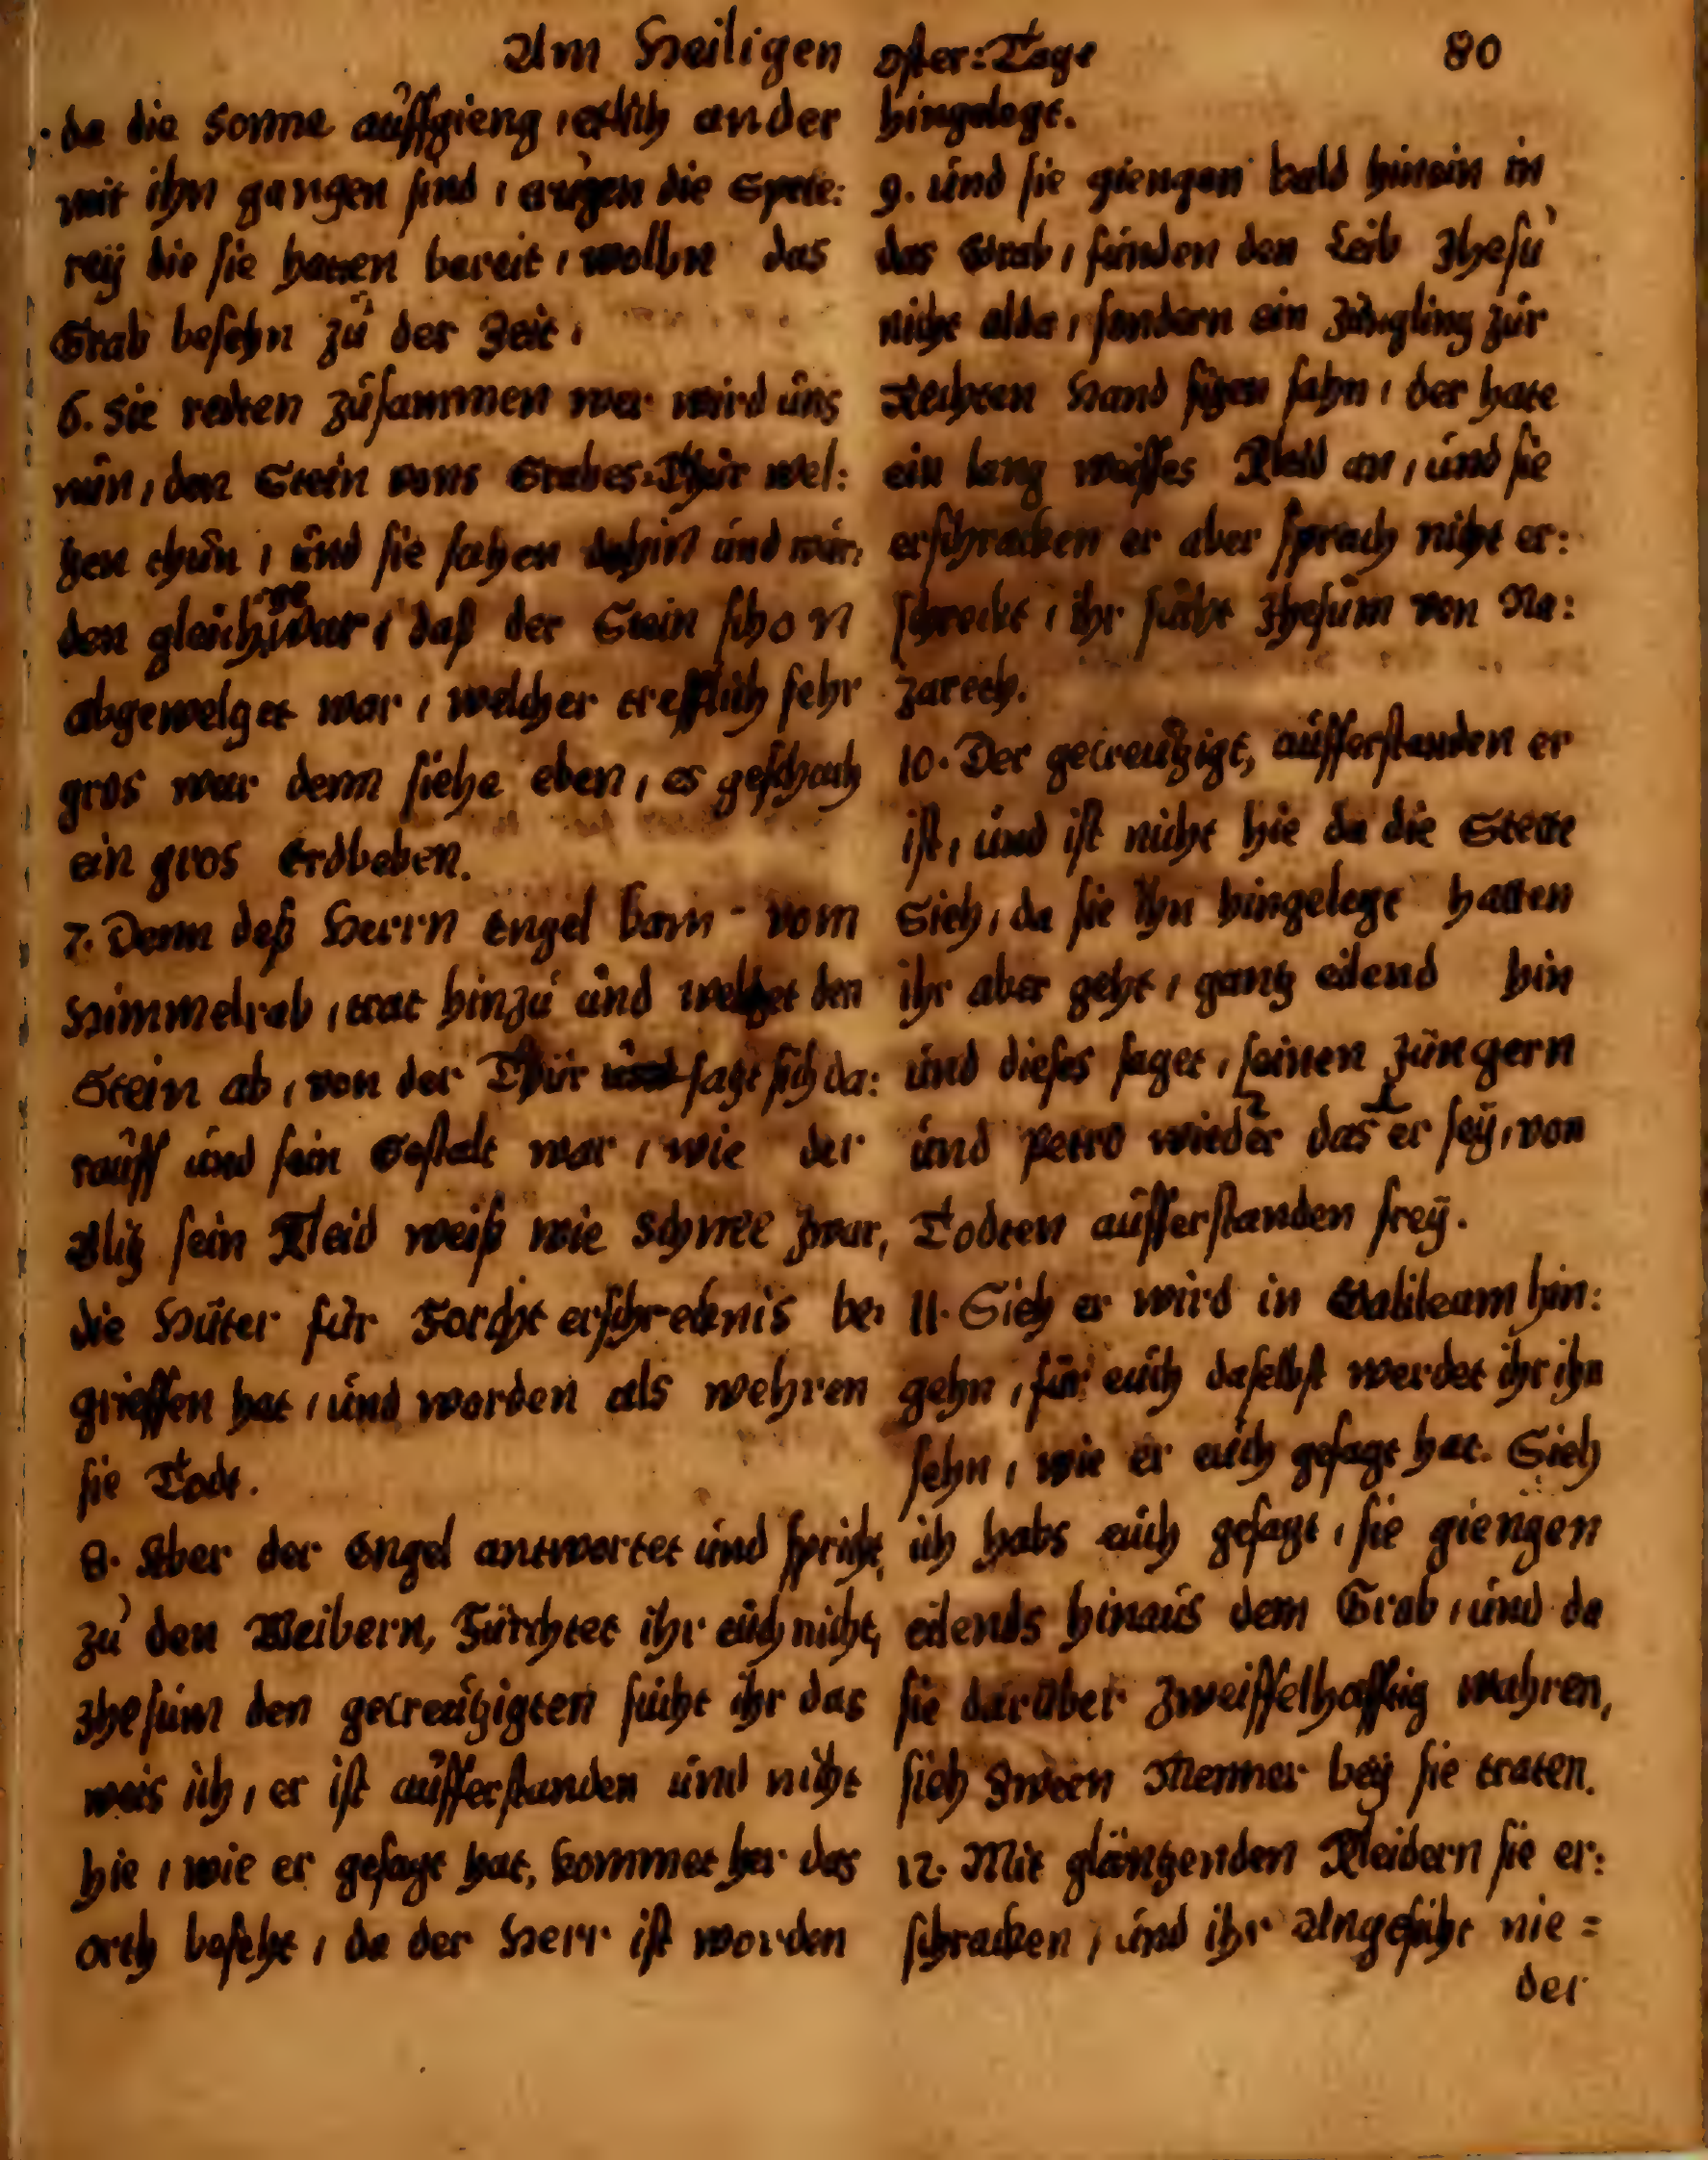 Am Heiligen Oster: Tage 80
da die Sonne auffgieng, etlich ander
mit ihn gangen sind, trugen die Spete:
reÿ die sie hatten bereit, wolln das
Grab besehn zu der Zeit,
6. Sie redten zusammen wer wird uns
nun, den Stein vons Grabes-Thür wel:
tzen thun, und sie sahen dahin und wur:
den gleich gewar, daß der Stein schon
abgeweltzet war, welcher trefflich sehr
gros war denn siehe eben, es geschach
ein gros Erdbeben.
7. Denn deß Herrn Engel kam vom
Himmel rab, trat hinzu und weltzet den
Stein ab, von der Thür satzt sich da:
rauff und sein Gestalt war, wie der
Blitz sein Kleid weiß wie Schnee zwar,
die Hüter für Forcht erschrecknis be:
grieffen hat, und worden als wehren
sie Todt.
8. Aber der Engel antwortet und spricht,
zu den Weibern, Fürchtet ihr euch nicht,
Jhesum den gecreutzigten sucht ihr das
weis ich, er ist aufferstanden und nicht
hie, wie er gesagt hat, kommet her das
orth beseht, da der Herr ist worden
hingelegt.
9. und sie giengen bald hinein in
das Grab, funden den Leib Jhesu
nicht alda, sondern ein Jüngling zur
Rechten Hand sitzen sahn, der hate
ein lang weisses Kleid an, und sie
erschracken er aber sprach nicht er:
schreckt, ihr sucht Jhesum von Na:
zareth.
10. Der gecreutzigt, aufferstanden er
ist, und ist nicht hie da die Stette
Sieh, da sie ihn hingelegt hatten
ihr aber geht, gantz eilend hin
und dieses saget, seinen Jüngern
und Petro wieder das er seÿ, von
Todten aufferstanden freÿ.
11. Sieh er wird in Galileam hin:
gehn, für euch daselbst werdet ihr ihn
sehn, wie er euch gesagt hat. Sieh
ich habs euch gesagt, sie giengen
eilends hinaus dem Grab, und da
sie darüber zweiffelhafftig wahren,
sieh Zween Menner beÿ sie traten.
12. Mit gläntzenden Kleidern sie er:
schracken, und ihr Angesicht nie =
der